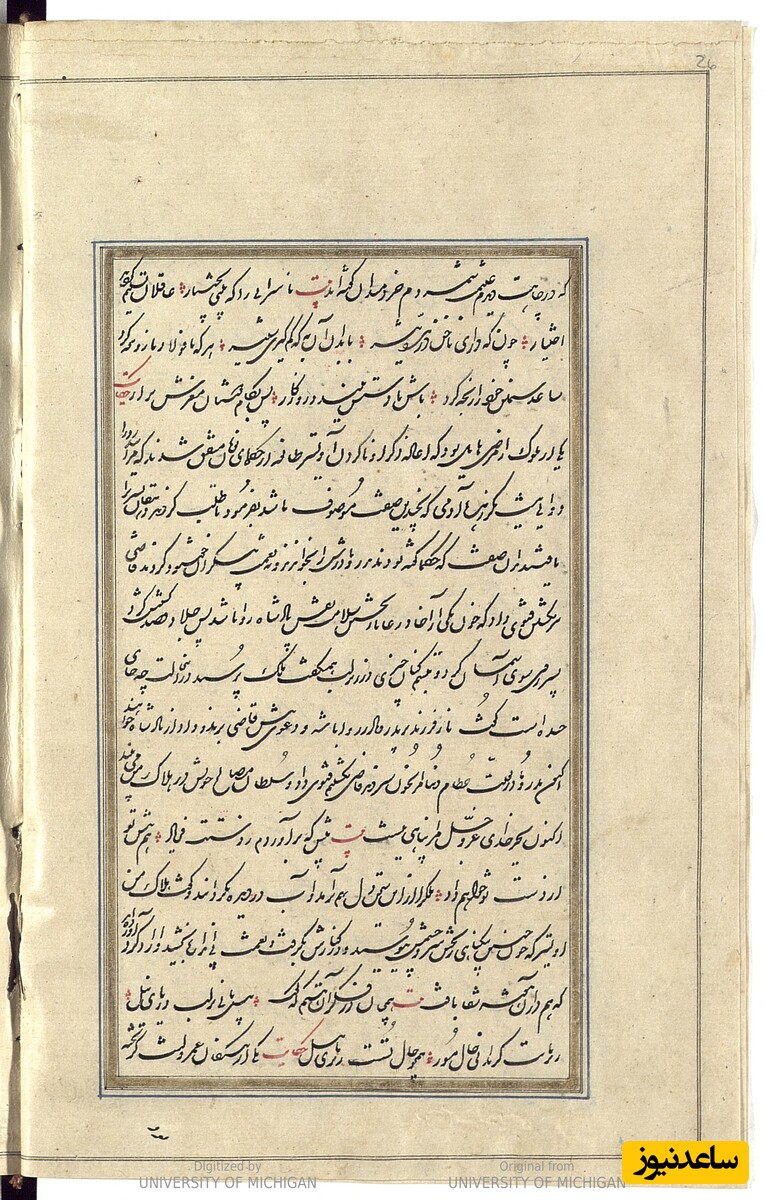 26
که در چاهت دیدم ناسزایی را که بینی بختیار عاقلان تسلیم کردند
اختیار چون که داری ناخن درنده با بدان آن به که کم گیری ستیز هر که با فولاد بازو پنجه کرد
ساعد مسکین خود را رنجه کرد باش تا دستش ببندد روزگار پس بکام دوستان مغزش برار حکایت
یکی از ملوک را مرضی هایل بود که اعاده ذکر او ناکردن اولیتر طایفه از حکمای یونان متفق شدند که مر این درد را
دوایی نیست مگر زهره آدمی که بچندین صفت موصوف باشد بفرمود تا طلب کردند دهقان پسری را
یافتند بدان صفت که حکما گفته بودند پدر و مادرش را بخواندند و بنعمت بیکران خشنود کردند قاضی
فتوی داد که خون یکی از آحاد رعایا ریختن سلامت نفس پادشاه را روا باشد پس جلاد قصد کشتنش کرد
پسر سوی آسمان کرد و تبسم کنان چیزی در زیر لب همیگفت ملک پرسید در این حالت چه جای
خنده است گفت ناز فرزند بر پدر و مادر باشد و دعوی پیش قاضی برند و داد از پادشاه خواهند
اکنون پدر و مادر بعلت حطام دنیا مرا بخون سپردند قاضی بکشتنم فتوی داد و سلطان مصالح خویش در هلاک من می بیند
اکنون بجز خدای عز و جل مرا پناهی نیست بیت پیش که برآورم ز دستت فریاد هم پیش تو
از دست تو خواهم داد ملک را از این سخن دل بهم برآمد و آب در دیده بگردانید و گفت هلاک من
اولیتر که خون چنین بیگناهی ریختن سر و چشمش ببوسید و در کنارش گرفت و نعمت بی اندازه بخشید و آزاد کرد
که هم در آن هفته شفا یافت بیت همچنان در فکر آن بیتم که گفت پیل بانی بر لب دریای نیل
زیر پایت گر بدانی حال مور همچو حال تست زیر پای پیل حکایت یکی از بندگان عمرو لیث گریخته
Digitized by UNIVERSITY OF MICHIGAN
Original from UNIVERSITY OF MICHIGAN
ساعدنیوز